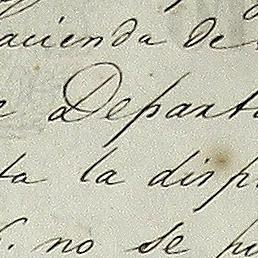 acienda de
e Departa
ta la disp
no se pu